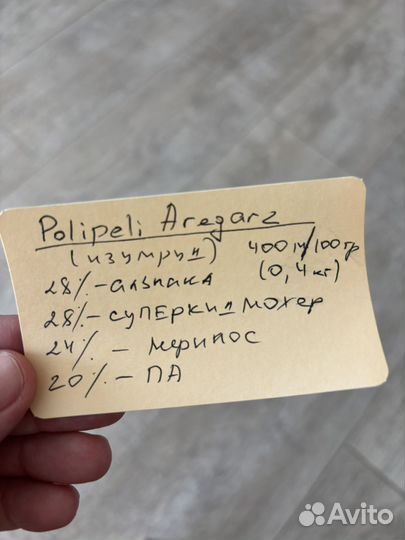 Polipeli Aregarz
(изумруд) 400 м/100 гр
28% - альпака (0,4 кг)
28% - суперкид мохер
24% - меринос
20% - ПА
Avito